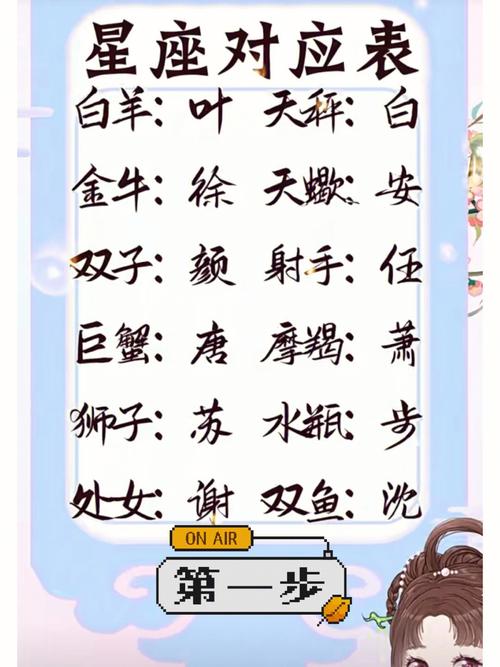 星座对应表
白羊：叶 天秤：白
金牛：徐 天蠍：安
双子：颜 射手：任
巨蟹：唐 摩羯：萧
狮子：苏 水瓶：步
处女：谢 双鱼：沈
ON AIR
第一步